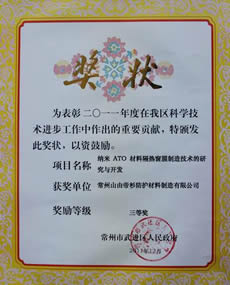 奖状
为表彰二〇一一年度在我区科学技
术进步工作中作出的重要贡献，特颁发
此奖状，以资鼓励。
项目名称 纳米 ATO 材料隔热窗膜制造技术的研
究与开发
获奖单位 常州山由帝杉防护材料制造有限公司
奖励等级 三等奖
常州市武进区人民政府